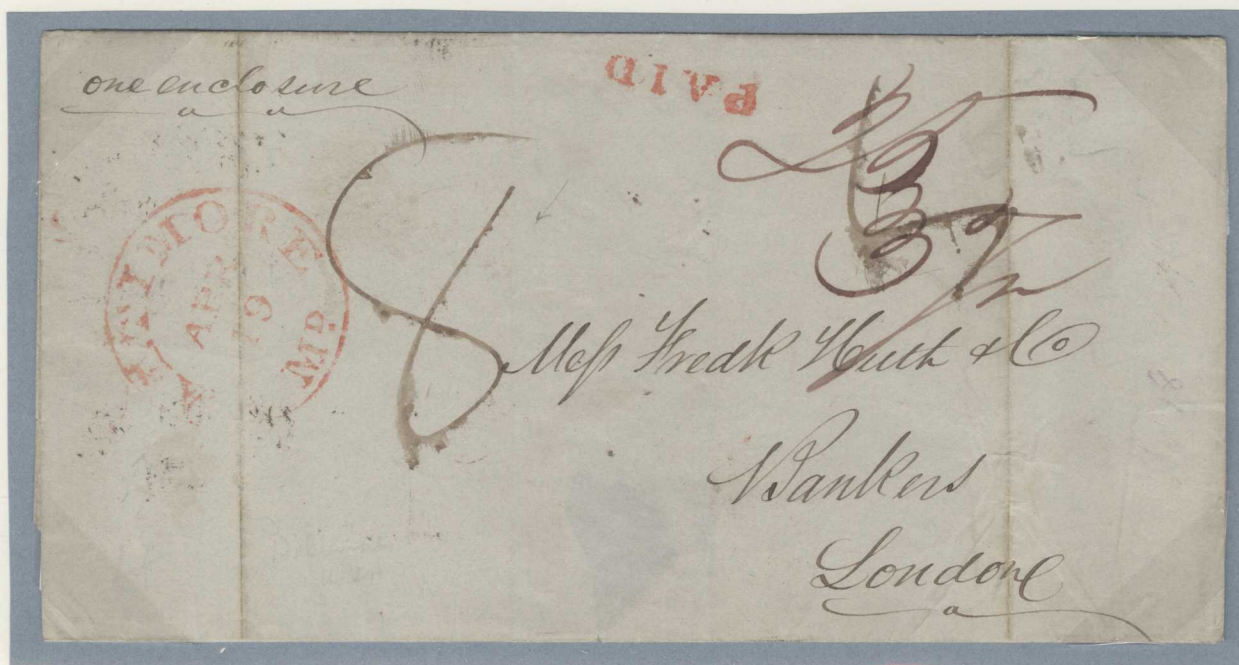 one enclosure
PAID
BALTIMORE MD.
APR
19
8
Mess Fredk Huth & Co
Bankers
London